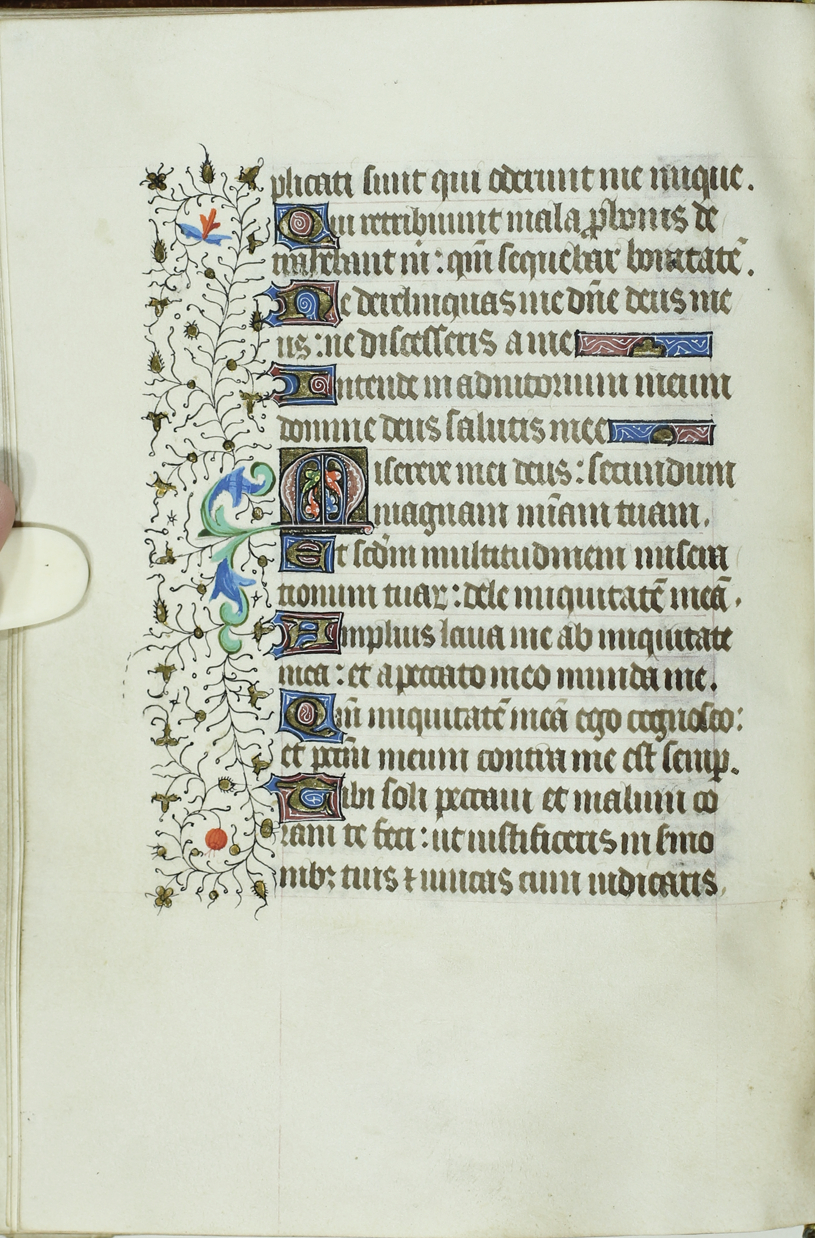 plicati sunt qui oderunt me inique.
Qui retribuunt mala ꝓ bonis de
trahebant m̄: qm̄ sequebar bonitatē.
Ne derelinquas me dn̄e deus me
us: ne discesseris a me
Intende in adiutorium meum
domine deus salutis mee
Miserere mei deus: secundum
magnam mīam tuam.
Et scd̄m multitudinem misera
tionum tuaꝝ: dele iniquitatē meā.
Amplius laua me ab iniquitate
mea: et a peccato meo munda me.
Qm̄ iniquitatē meā ego cognosco:
et pctm̄ meum contra me est semꝑ.
Tibi soli peccaui et malum co
ram te feci: ut iustificeris in sermo
nibꝫ tuis ⁊ uincas cum iudicaris